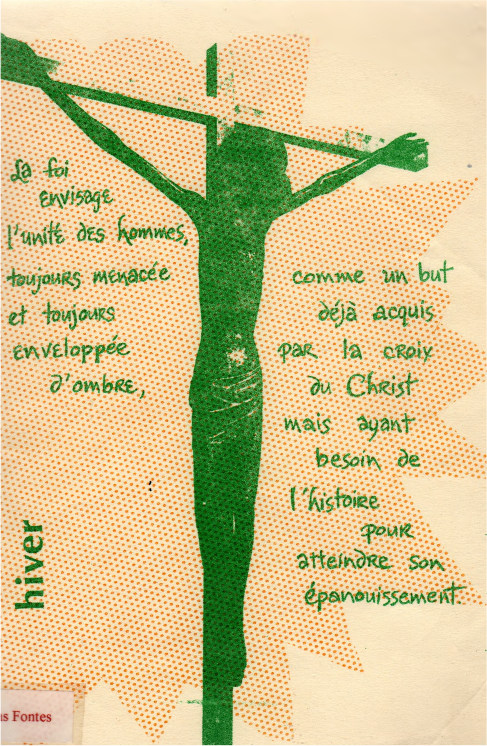 La foi
envisage
l'unité des hommes,
toujours menacée
et toujours
enveloppée
d'ombre,
comme un but
déjà acquis
par la croix
du Christ
mais ayant
besoin de
l'histoire
pour
atteindre son
épanouissement.
hiver
Fontes